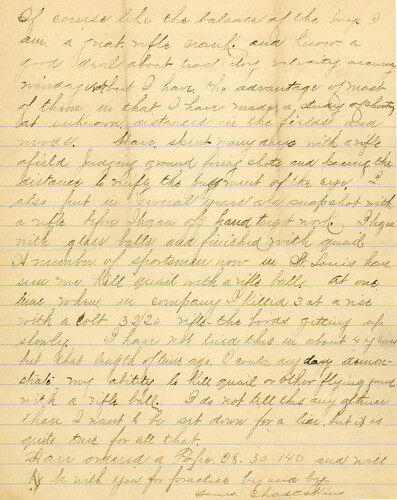 Of course like the balance of the boys I
am a great rifle crank and know a
good deal about trajectory velocity accuracy
windage but I have the advantage of most
of them in that I have made a study of shooting
at unknown distances in the fields and
woods. Have spent many days with a rifle
afield judging ground firing shots and pacing the
distance to verify the judgment of the eye. I
also put in several years as a snapshot with
a rifle before I began off hand target work. I began
with glass balls and finished with quail
A number of sportsmen now in St Louis have
seen me kill quail with a rifle ball. At one
time when in company I killed 3 at a rise
with a Colt 32/20 rifle the birds getting up
slowly. I have not tried this in about 4 years
but that length of time ago I could any day demon-
strate my ability to kill quail or other flying game
with a rifle ball. I do not tell this any oftener
than I want to be set down for a liar but it is
quite true for all that.
Have ordered a 28. 30. 140 and will
be with you for practice by and by.
Yours